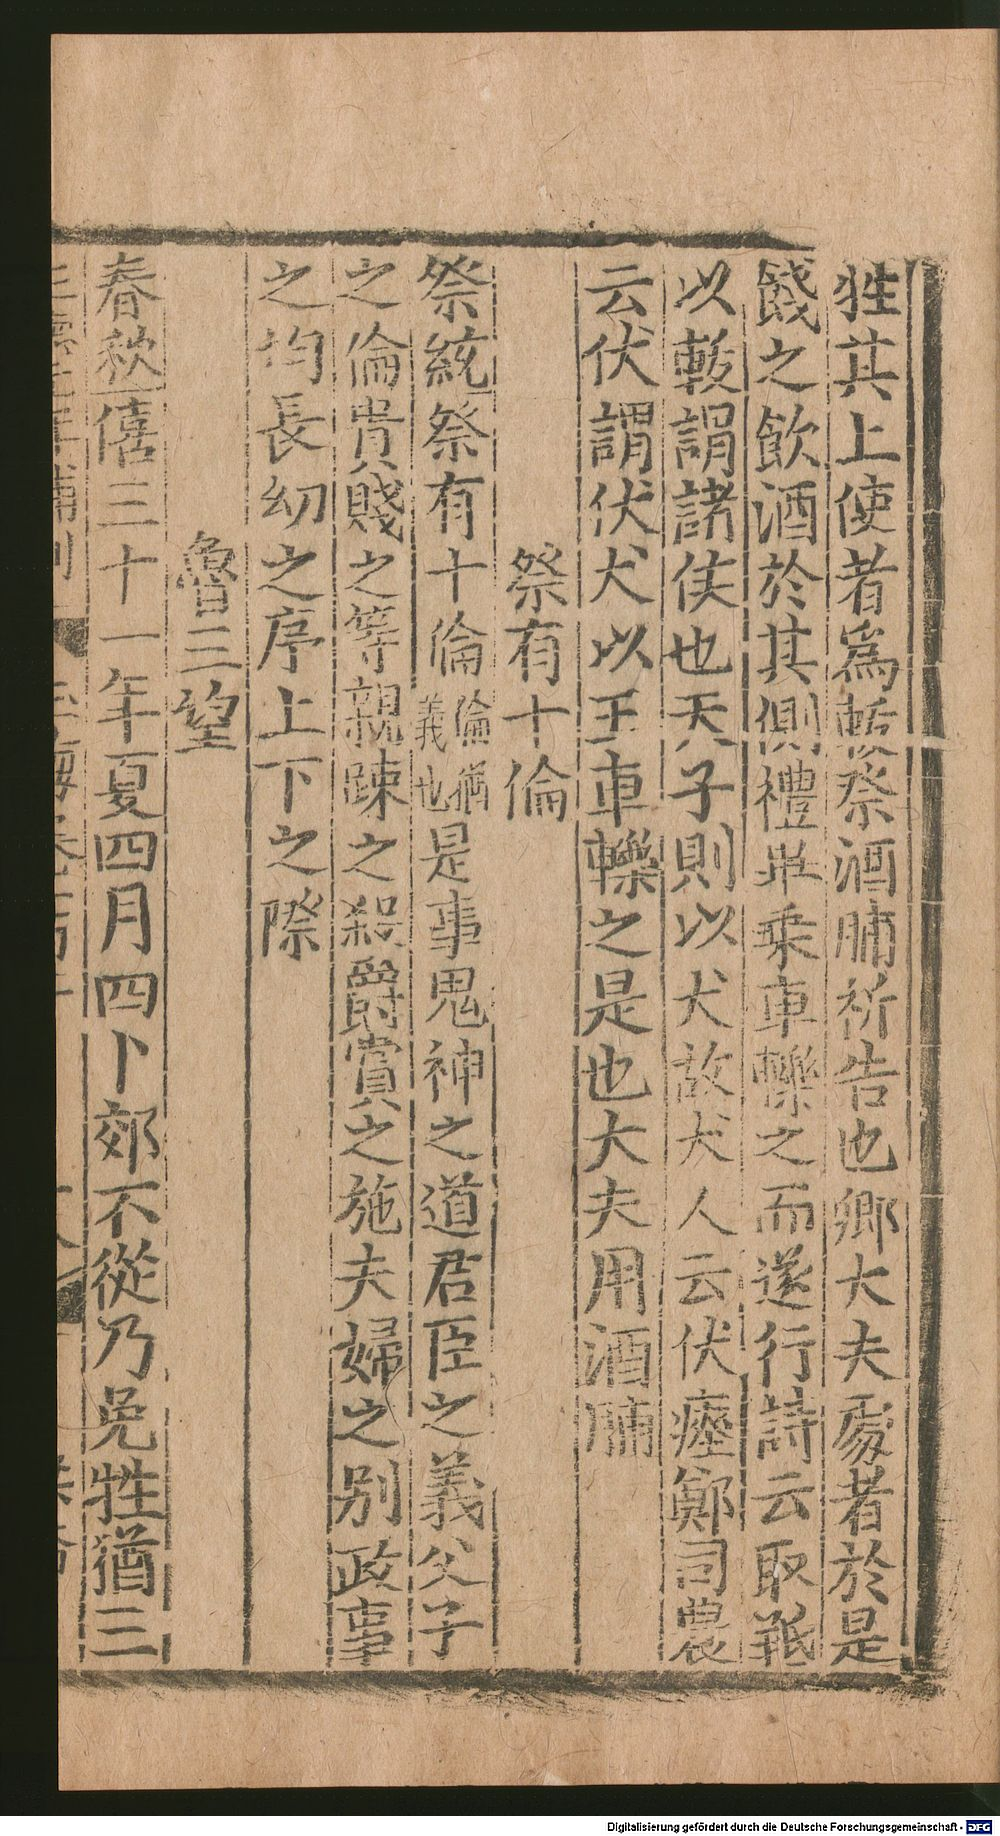 牲其上使者爲軷祭酒脯祈告也卿大夫處者於是
餞之飲酒於其側禮畢乗車轢之而遂行詩云取羝
以軷謂諸侯也天子則以犬故犬人云伏瘞鄭司農
云伏謂伏犬以王車轢之是也大夫用酒脯
祭有十倫
祭統祭有十倫倫猶義也是事鬼神之道君臣之義父子
之倫貴賤之等親踈之殺爵賞之施夫婦之別政事
之均長幼之序上下之際
魯三望
春秋僖三十一年夏四月四卜郊不從乃免牲猶三
Digitalisierung gefördert durch die Deutsche Forschungsgemeinschaft - DFG